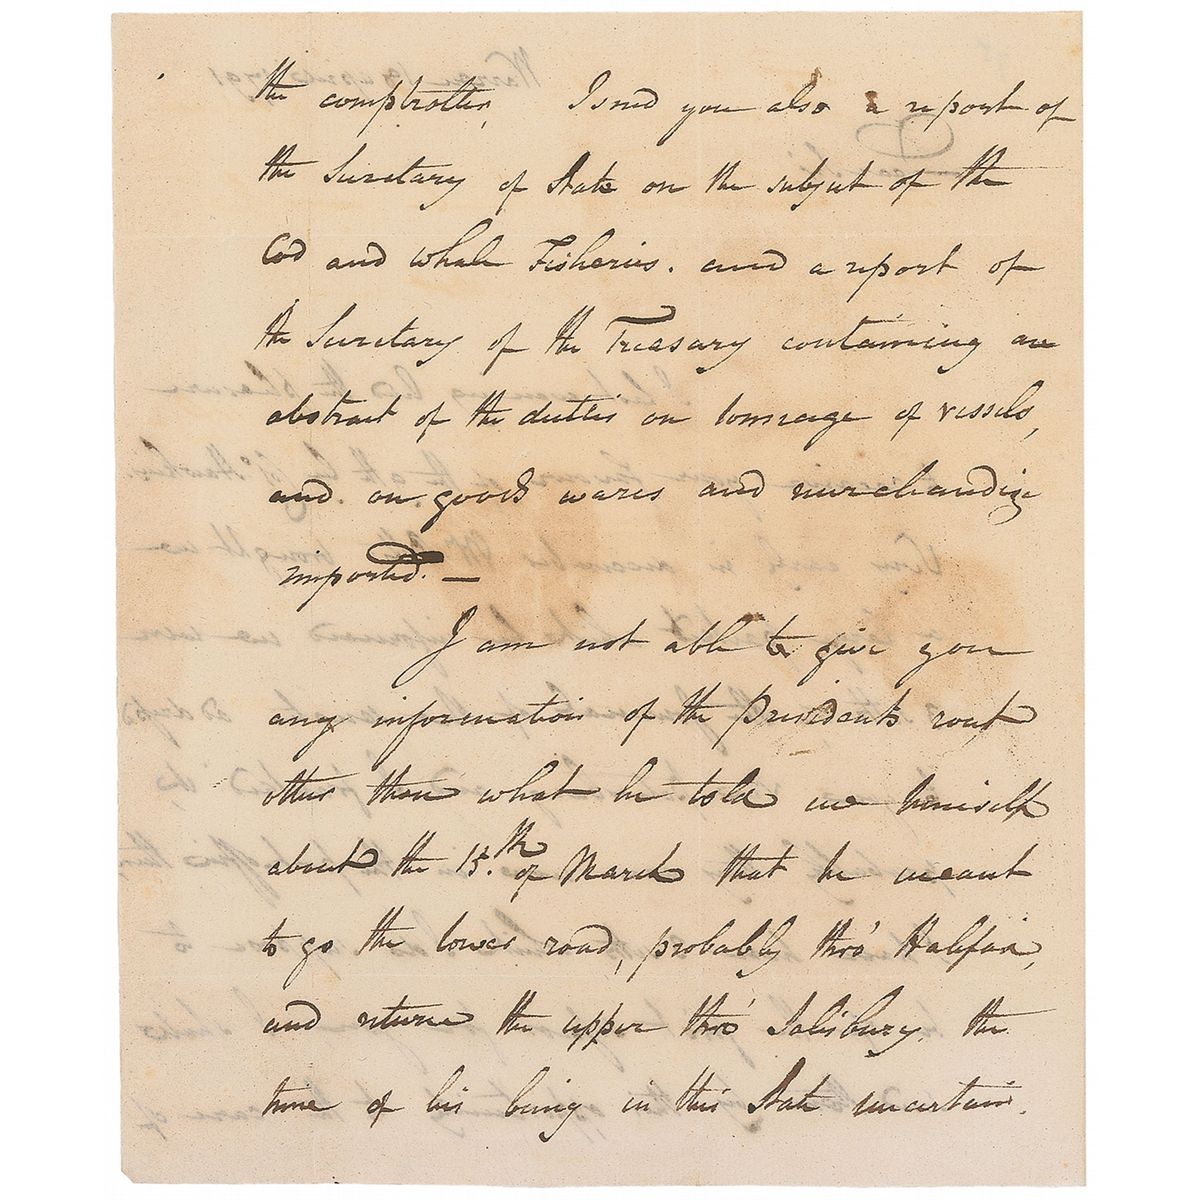 the comptroller, I send you also a report of
the Secretary of State on the subject of the
Cod and whale Fisheries. and a report of
the Secretary of the Treasury containing an
abstract of the duties on tonnage of vessels,
and on goods wares and merchandize
imported. —
I am not able to give you
any information of the Presidents rout
other than what he told me himself
about the 15.th of March that he meant
to go the lower road, probably thro' Halifax,
and return the upper thro' Salisbury, the
time of his being in this State uncertain.